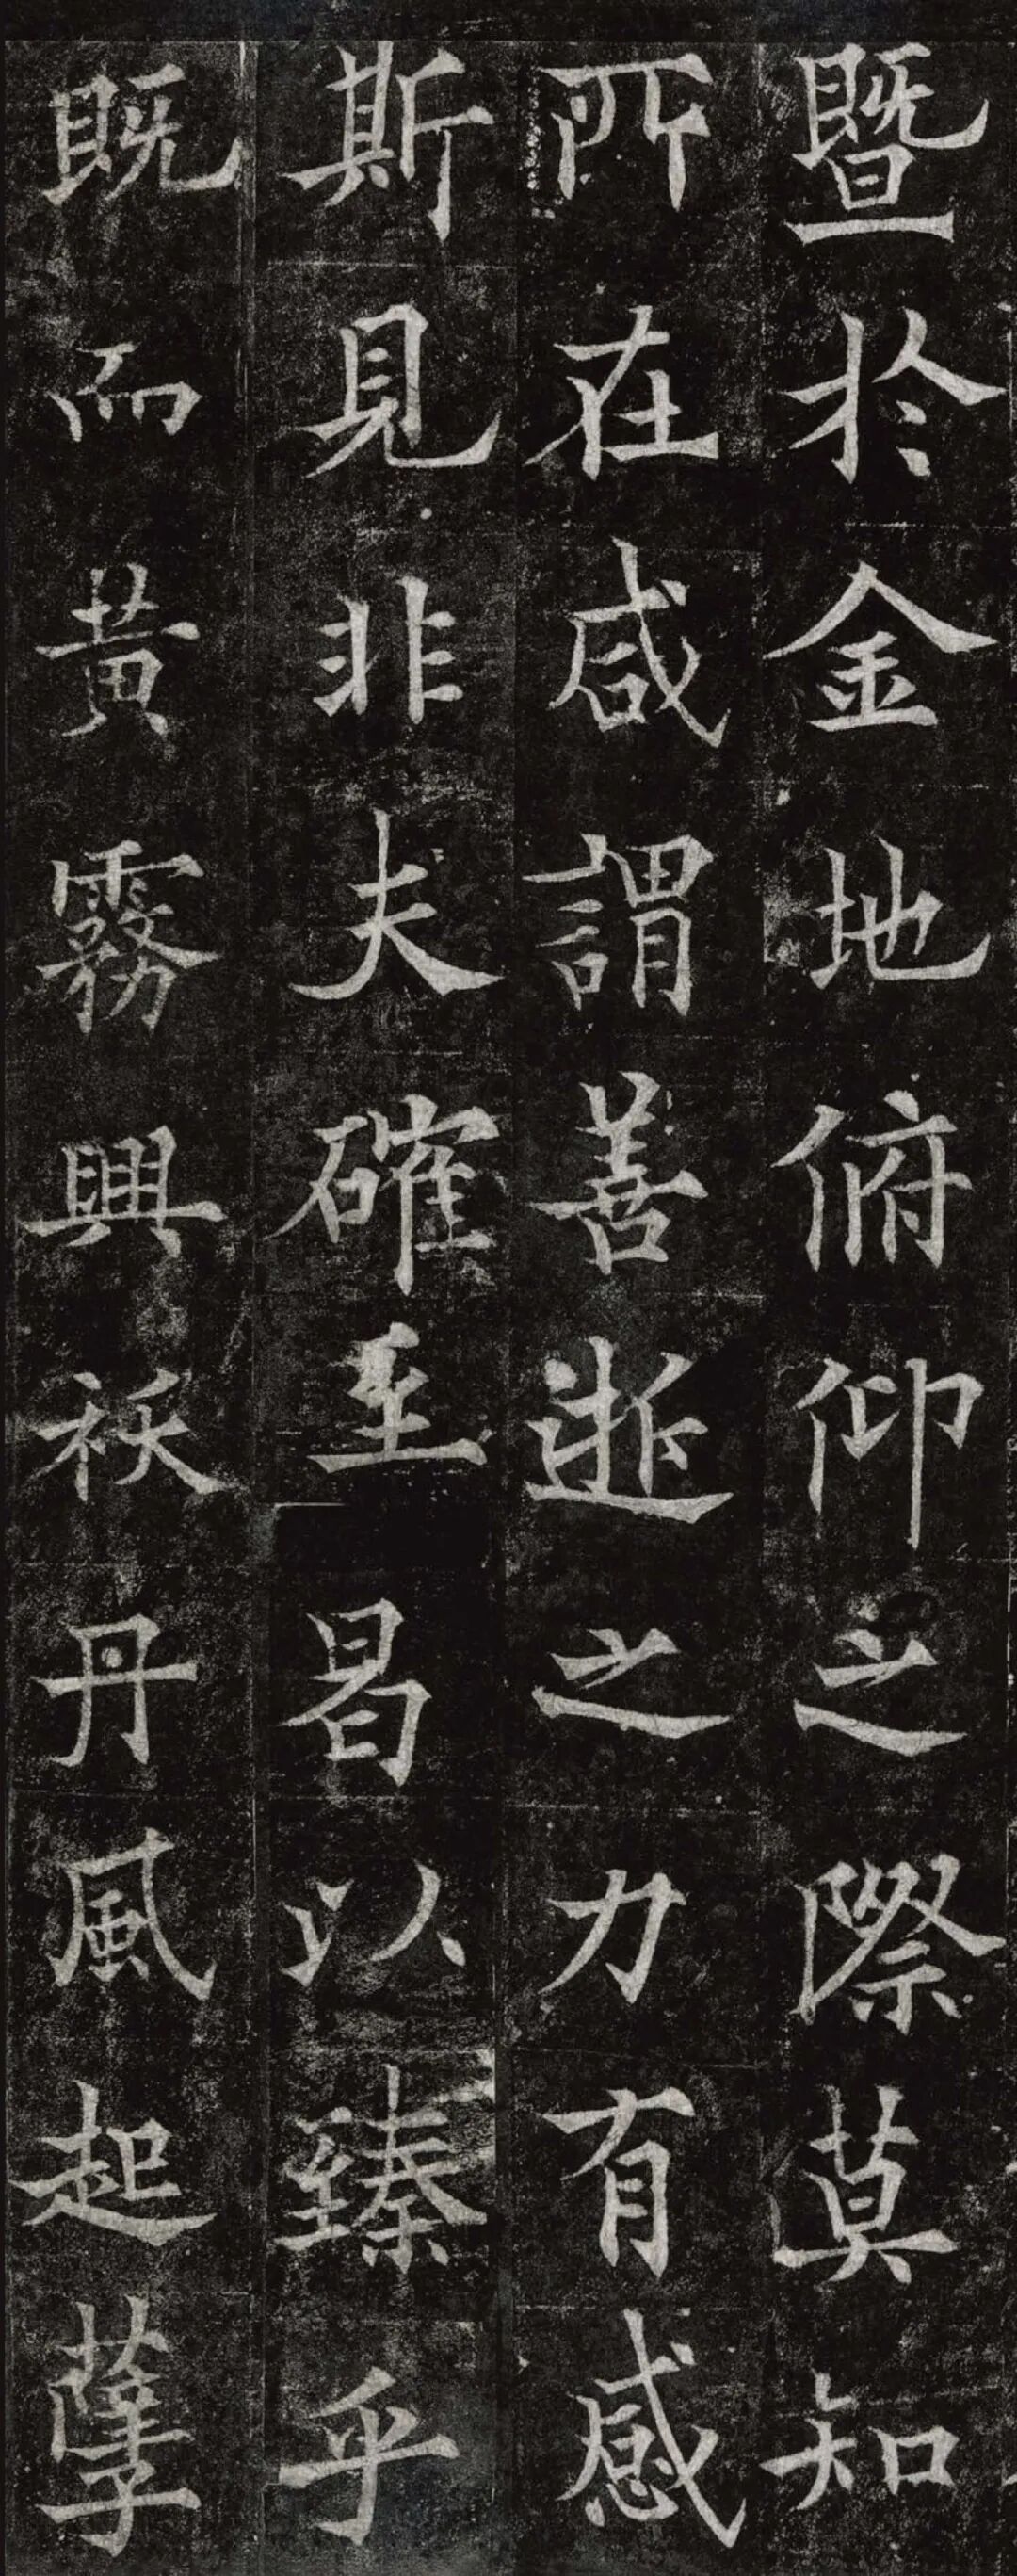 暨於金地俯仰之際莫知
所在咸謂善逝之力有感
斯見非夫確至曷以臻乎
既而黃霧興祅丹風起孽